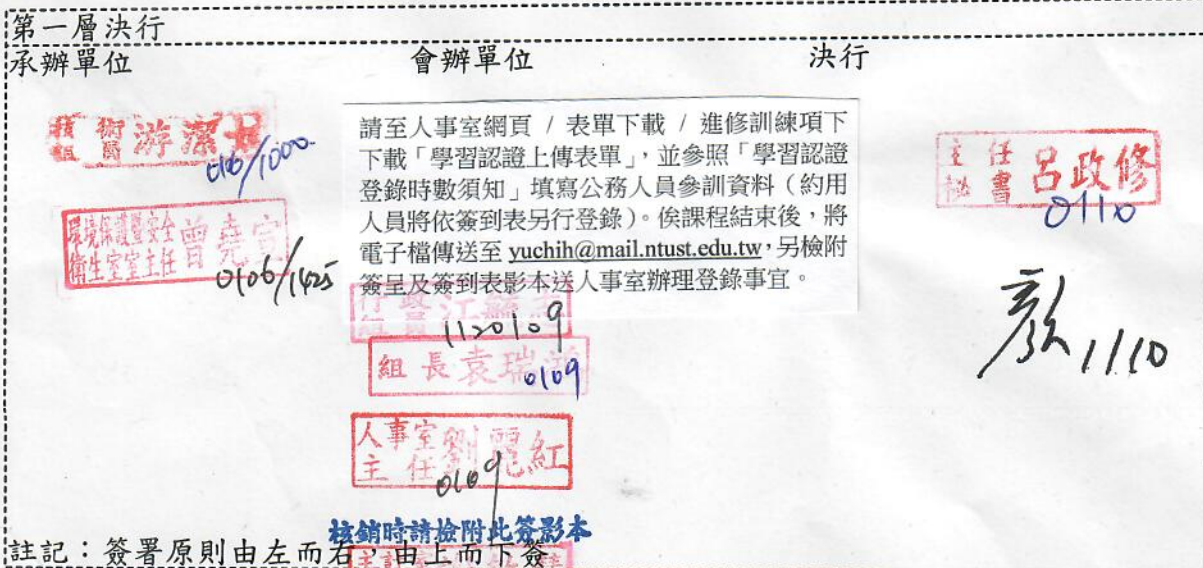 第一層決行
承辦單位
會辦單位
決行
技術
組員
游潔
0106/1000
環境保護暨安全
衛生室室主任
曾堯宣
0106/1425
請至人事室網頁 / 表單下載 / 進修訓練項下
下載「學習認證上傳表單」,並參照「學習認證
登錄時數須知」填寫公務人員參訓資料(約用
人員將依簽到表另行登錄)。俟課程結束後,將
電子檔傳送至 yuchih@mail.ntust.edu.tw,另檢附
簽呈及簽到表影本送人事室辦理登錄事宜。
行政
組員
江
1120109
組長袁瑞
0109
人事室
主任
劉麗紅
0109
核銷時請檢附此簽影本
主任
秘書
呂政修
0110
1110
註記:簽署原則由左而右,由上而下簽
主計室